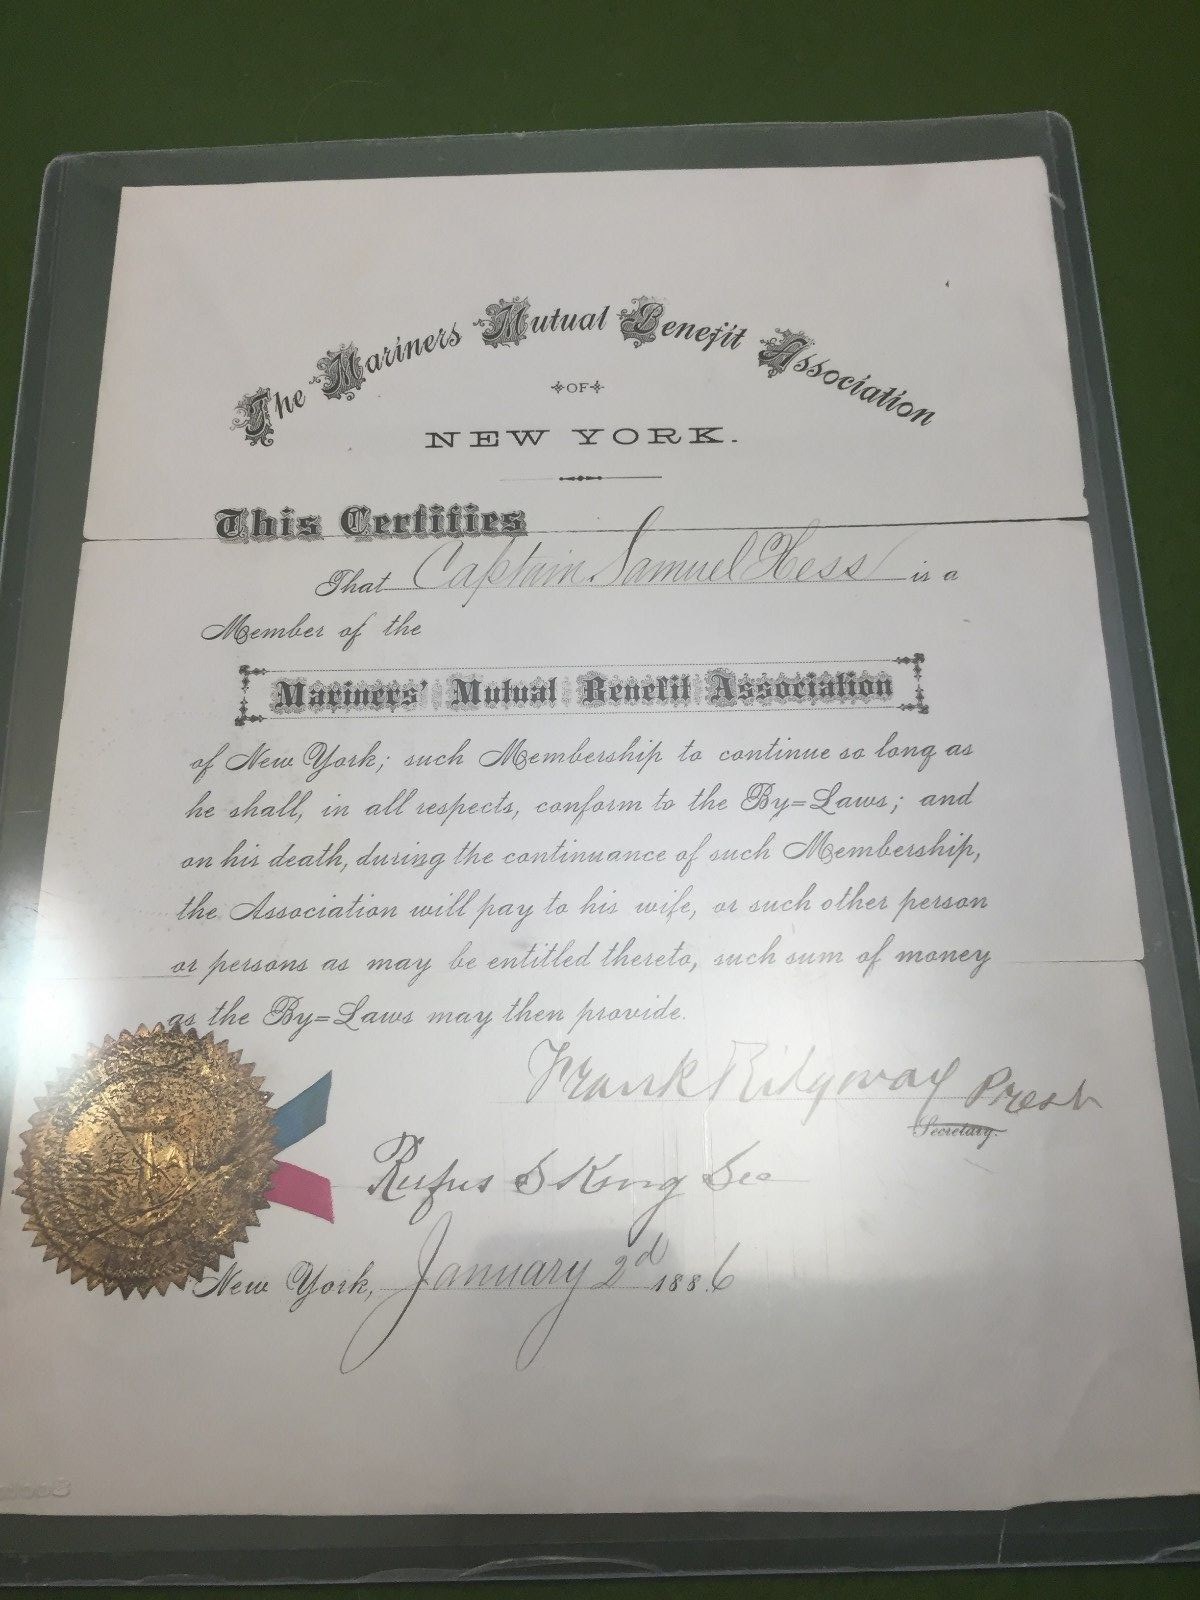 The Mariners Mutual Benefit Association
OF
NEW YORK.
This Certifies
That Captain Samuel Hess is a
Member of the
Mariners' Mutual Benefit Association
of New York; such Membership to continue so long as
he shall, in all respects, conform to the By=Laws; and
on his death, during the continuance of such Membership,
the Association will pay to his wife, or such other person
or persons as may be entitled thereto, such sum of money
as the By=Laws may then provide.
Frank Ridgway Prest
Secretary.
Rufus S King Sec
New York, January 2d 1886